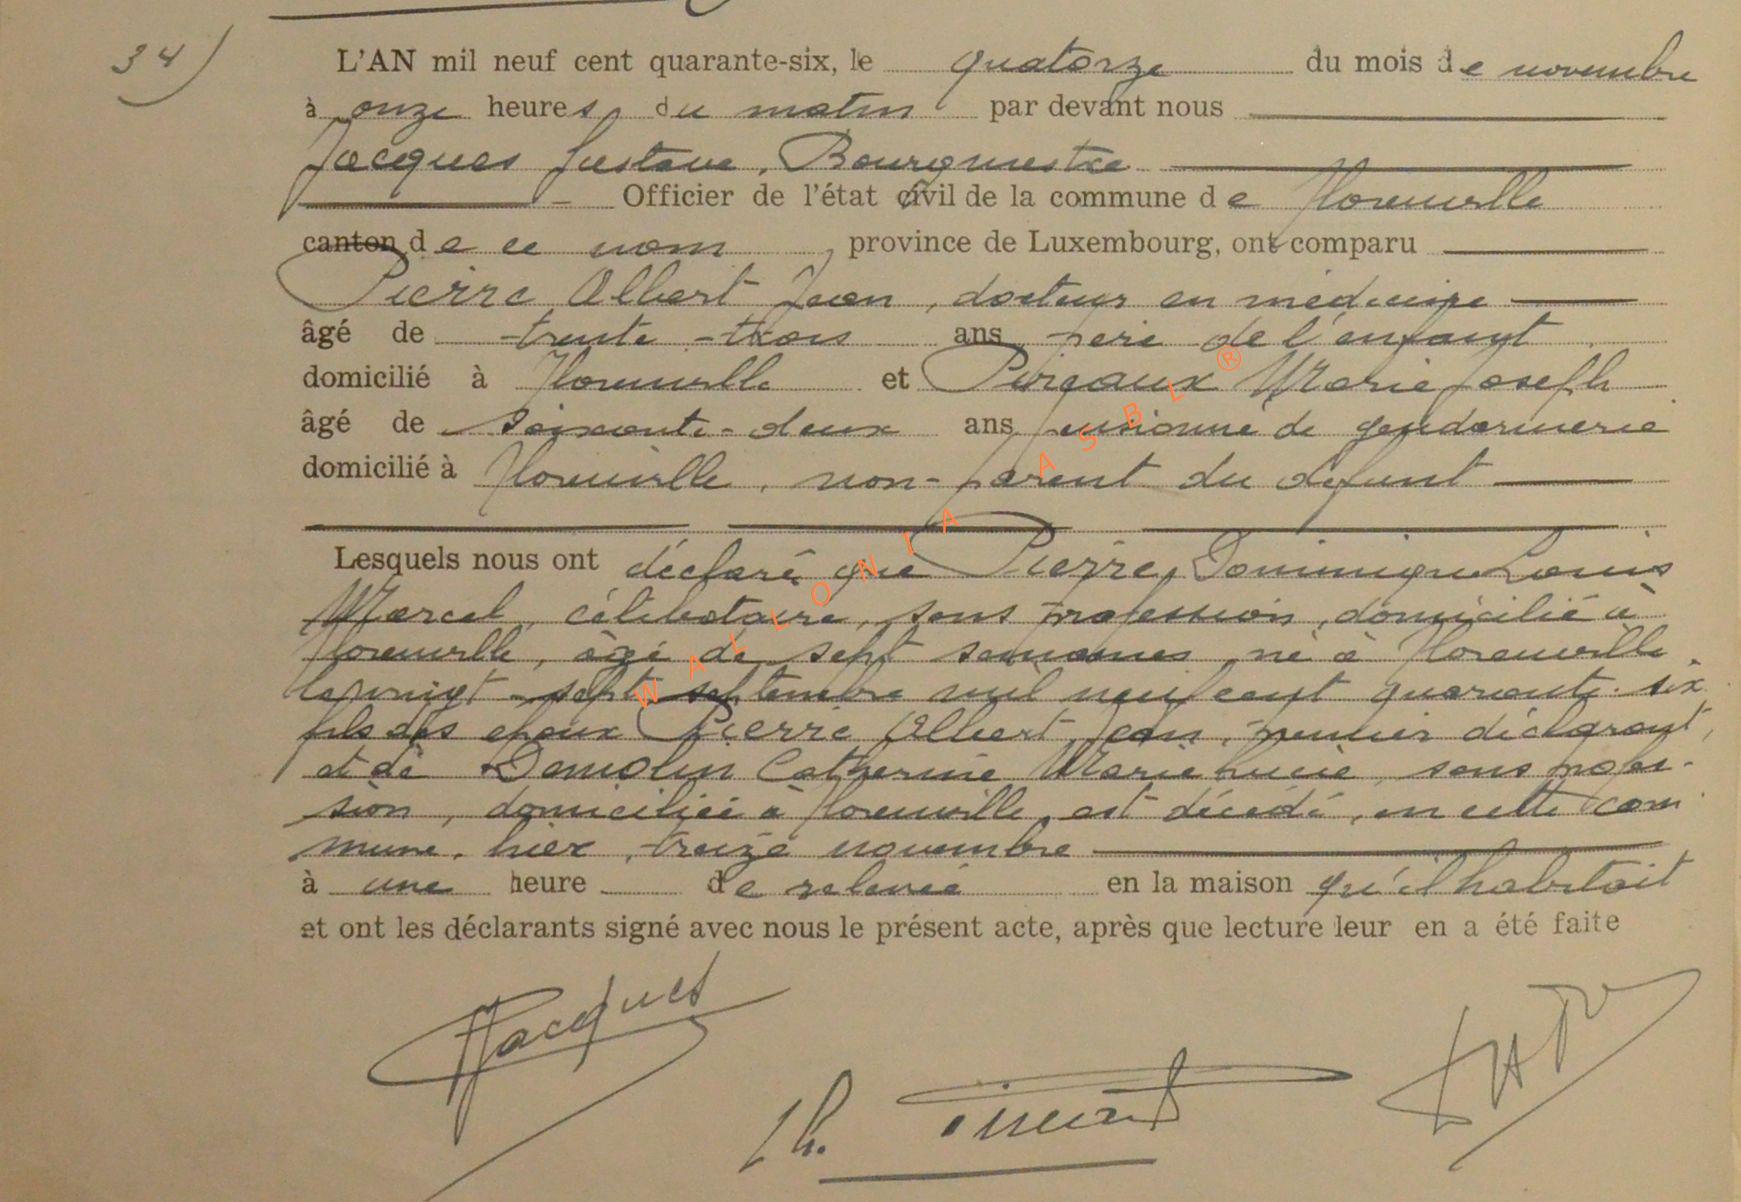 34)
L'AN mil neuf cent quarante-six, le quatorze du mois de novembre
à onze heures du matin par devant nous
Jacques Gustave, Bourgmestre
Officier de l'état civil de la commune de Florenville
canton de ce nom, province de Luxembourg, ont comparu
Pierre Albert Jean, docteur en médecine
âgé de trente-trois ans père de l'enfant
domicilié à Florenville et Marie Joseph
âgé de soixante-deux ans pensionné de gendarmerie
domicilié à Florenville, non-parent du défunt
Lesquels nous ont déclaré que Pierre, Dominique Louis
Marcel, célibataire, sans profession, domicilié à
Florenville, âgé de sept semaines, né à Florenville
le vingt-sept septembre mil neuf cent quarante-six
fils des époux Pierre Albert Jean, premier déclarant,
et de Damolin Catherine Marie Lucie, sans profes-
sion, domiciliée à Florenville, est décédé, en cette com
mune, hier, treize novembre
à une heure de relevée en la maison qu'il habitait
et ont les déclarants signé avec nous le présent acte, après que lecture leur en a été faite
WALLONIA ASBL ®
Jacques